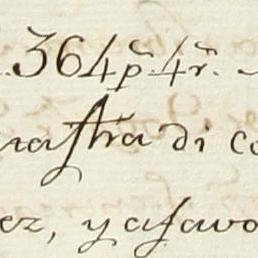 364 p̃ 4 r̃.
nastra di co
ez, y a favo